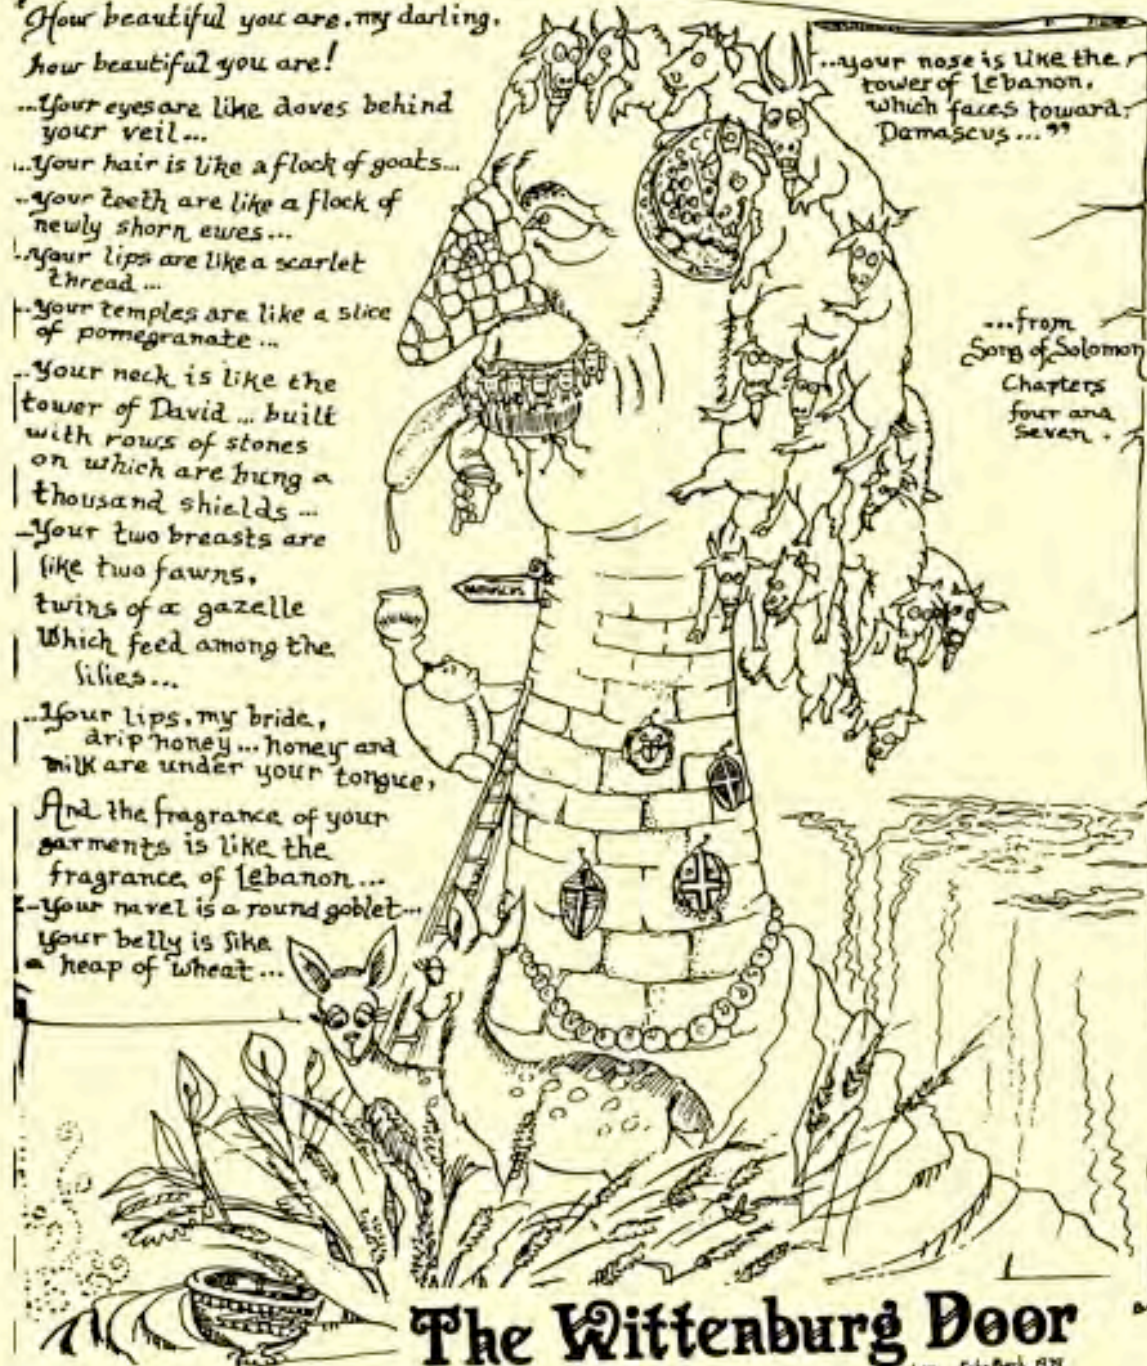 "How beautiful you are, my darling,
how beautiful you are!
...Your eyes are like doves behind
your veil...
...Your hair is like a flock of goats...
...your teeth are like a flock of
newly shorn ewes...
...your lips are like a scarlet
thread...
...Your temples are like a slice
of pomegranate...
...Your neck is like the
tower of David... built
with rows of stones
on which are hung a
thousand shields...
...Your two breasts are
like two fawns,
twins of a gazelle
Which feed among the
lilies...
...Your lips, my bride,
drip honey... honey and
milk are under your tongue,
And the fragrance of your
garments is like the
fragrance of Lebanon...
...Your navel is a round goblet...
your belly is like
a heap of wheat...
...your nose is like the
tower of Lebanon,
which faces toward
Damascus..."
...from
Song of Solomon
Chapters
four and
seven.
DAMASCUS
HONEY
The Wittenburg Door